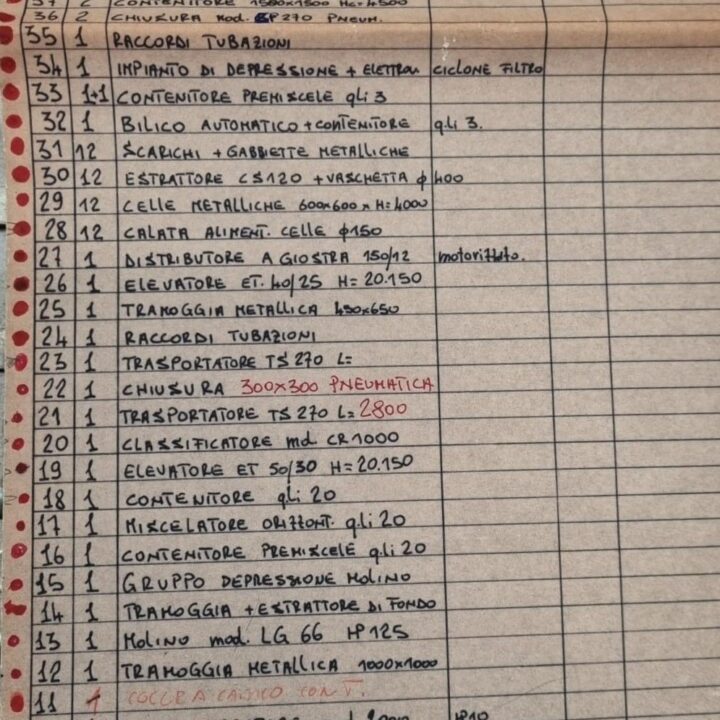 37 2 CONTENITORE 1500x1500 H=4500
36 2 CHIUSURA Mod. SP270 PNEUM.
35 1 RACCORDI TUBAZIONI
34 1 IMPIANTO DI DEPRESSIONE + ELETTROV CICLONE FILTRO
33 1+1 CONTENITORE PREMISCELE qli 3
32 1 BILICO AUTOMATICO + CONTENITORE qli 3.
31 12 SCARICHI + GABBIETTE METALLICHE
30 12 ESTRATTORE CS120 + VASCHETTA ϕ 400
29 12 CELLE METALLICHE 600x600 x H=4000
28 12 CALATA ALIMENT. CELLE ϕ150
27 1 DISTRIBUTORE A GIOSTRA 150/12 motorizzato.
26 1 ELEVATORE ET. 40/25 H=20.150
25 1 TRAMOGGIA METALLICA 450x650
24 1 RACCORDI TUBAZIONI
23 1 TRASPORTATORE TS 270 L=
22 1 CHIUSURA 300x300 PNEUMATICA
21 1 TRASPORTATORE TS 270 L=2800
20 1 CLASSIFICATORE md. CR1000
19 1 ELEVATORE ET 50/30 H=20.150
18 1 CONTENITORE qli 20
17 1 MISCELATORE ORIZZONT. qli 20
16 1 CONTENITORE PREMISCELE qli 20
15 1 GRUPPO DEPRESSIONE MOLINO
14 1 TRAMOGGIA + ESTRATTORE DI FONDO
13 1 MOLINO mod. LG 66 HP125
12 1 TRAMOGGIA METALLICA 1000x1000
11 1 CARICO CONT.
HP10